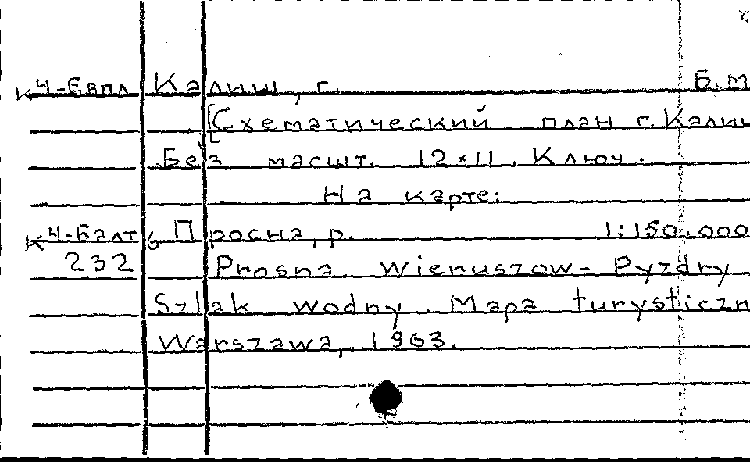 К4-Евпл Калиш, г. Б.м
[Схематический план г. Калиш
Без масшт. 12×11. Ключ.
На карте:
К4-Балт 6 Просна, р. 1:150.000
232 Prosna. Wieruszow - Pyzdry
Szlak wodny. Mapa turystyczn
Warszawa, 1963.